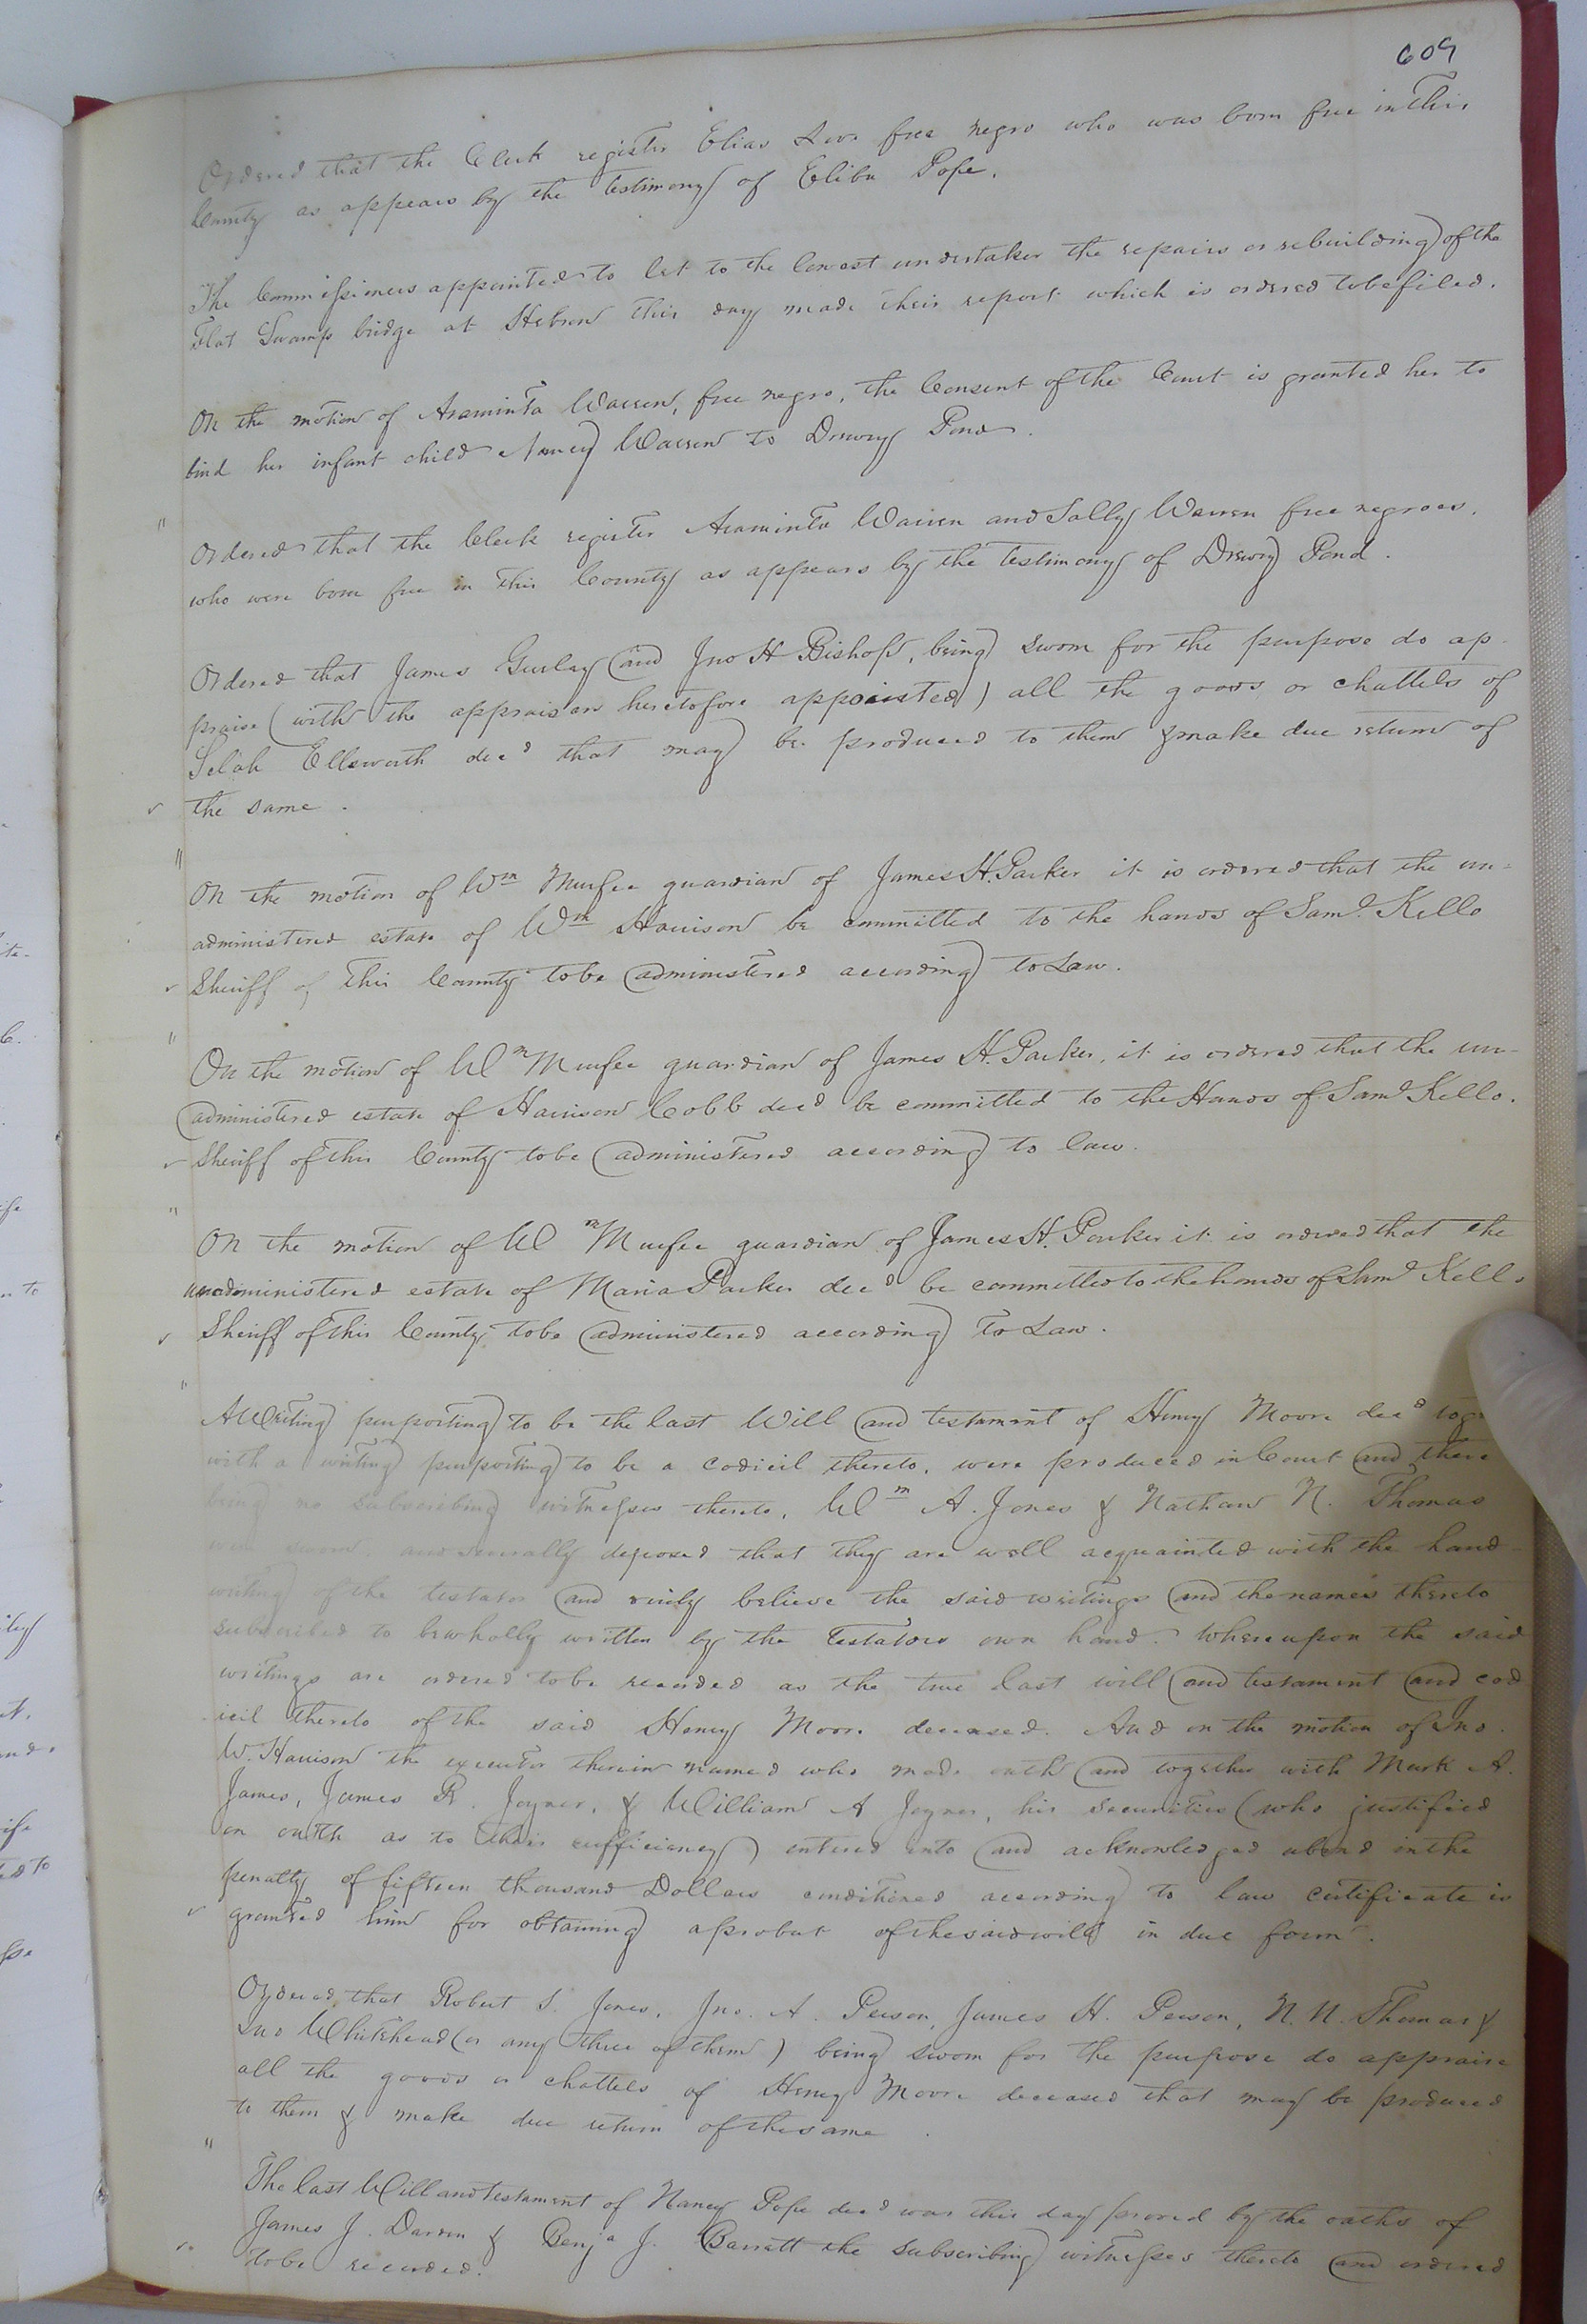 609
Ordered that the Clerk register Elias free negro who was born free in this
County as appears by the testimony of Pope.
The Commissioners appointed to let to the lowest undertaker the repairs or rebuilding of the
Flat Swamp bridge at Hebron this day made their report which is ordered to be filed.
On the motion of Araminta Warren, free negro, the Consent of the Court is granted her to
bind her infant child Nancy Warren to Drewry Pond.
Ordered that the Clerk register Araminta Warren and Sally Warren free negroes.
who were born free in this County as appears by the testimony of Drewry Pond.
Ordered that James Gurley and Jno H Bishop, being sworn for the purpose do ap-
praise (with the appraisers heretofore appointed) all the goods or chattels of
Selah Ellsworth decd that may be produced to them & make due return of
the same.
On the motion of Wm Murfee guardian of James H. Parker it is ordered that the un-
administered estate of Wm Harrison be committed to the hands of Saml Kello
Sheriff of this County to be administered according to Law.
On the motion of Wm Murfee guardian of James H. Parker, it is ordered that the un-
administered estate of Harrison Cobb decd be committed to the Hands of Saml Kello.
Sheriff of this County to be administered according to law.
On the motion of Wm Murfee guardian of James H. Parker it is ordered that the
unadministered estate of Maria Parker decd be committed to the hands of Saml Kello
Sheriff of this County, to be administered according to Law.
A Writing purporting to be the last Will and testament of Henry Moore decd
with a writing purporting to be a codicil thereto, were produced in Court and there
being no subscribing witnesses thereto, Wm A. Jones & Nathan N. Thomas
were sworn and severally deposed that they are well acquainted with the hand-
writing of the testator and verily believe the said writings and the names thereto
subscribed to be wholly written by the testators own hand. Whereupon the said
writings are ordered to be recorded as the true last will and testament and cod
icil thereto of the said Henry Moore deceased. And on the motion of Jno.
W. Harrison the executor therein named who made oath and together with Mark A.
James, James R. Joyner, & William A Joyner, his securities (who justified
on oath as to their sufficiency) entered into and acknowledged a bond in the
penalty of fifteen thousand Dollars conditioned according to law certificate is
granted him for obtaining a probat of the said will in due form.
Ordered that Robert S. Jones, Jno. A. Person, James H. Person, N. N. Thomas &
Jno Whitehead (or any three of them) being sworn for the purpose do appraise
all the goods or chattels of Henry Moore deceased that may be produced
to them & make due return of the same.
The last Will and testament of Nancy Pope decd was this day proved by the oaths of
James J. Darden & Benja J. Barrett the subscribing witnesses thereto and ordered
to be recorded.